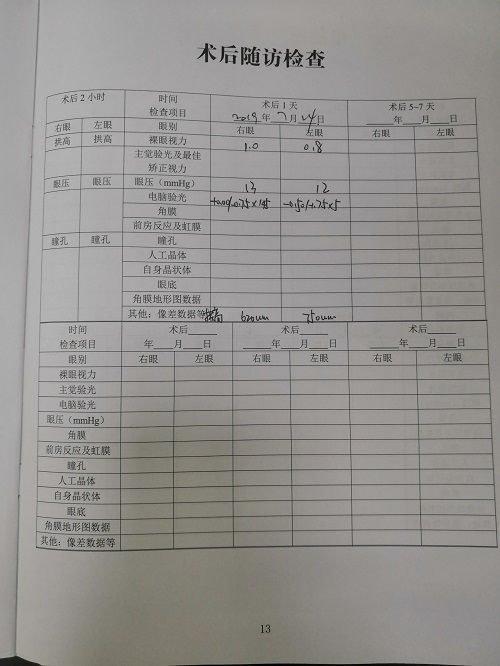 术后随访检查
术后2小时 时间 术后1天 术后5~7天
检查项目 2019年7月24日 年 月 日
右眼 左眼 眼别 右眼 左眼 右眼 左眼
拱高 拱高 裸眼视力 1.0 0.8
主觉验光及最佳
矫正视力
眼压 眼压 眼压(mmHg) 13 12
电脑验光 -0.50/-1.75×5
角膜
前房反应及虹膜
瞳孔 瞳孔 瞳孔
人工晶体
自身晶状体
眼底
角膜地形图数据
其他:像差数据等 拱高 620um 750um
时间 术后 术后 术后
检查项目 年 月 日 年 月 日 年 月 日
眼别 右眼 左眼 右眼 左眼 右眼 左眼
裸眼视力
主觉验光
电脑验光
眼压(mmHg)
角膜
前房反应及虹膜
瞳孔
人工晶体
自身晶状体
眼底
角膜地形图数据
其他:像差数据等
13